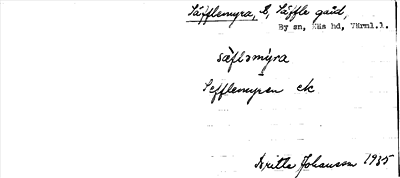 Säfflemyra, t, Säffle gård,
By sn, Näs hd, Värml.l.
säfləmyra
Sefflemyren ek
Britta Johansson 1935